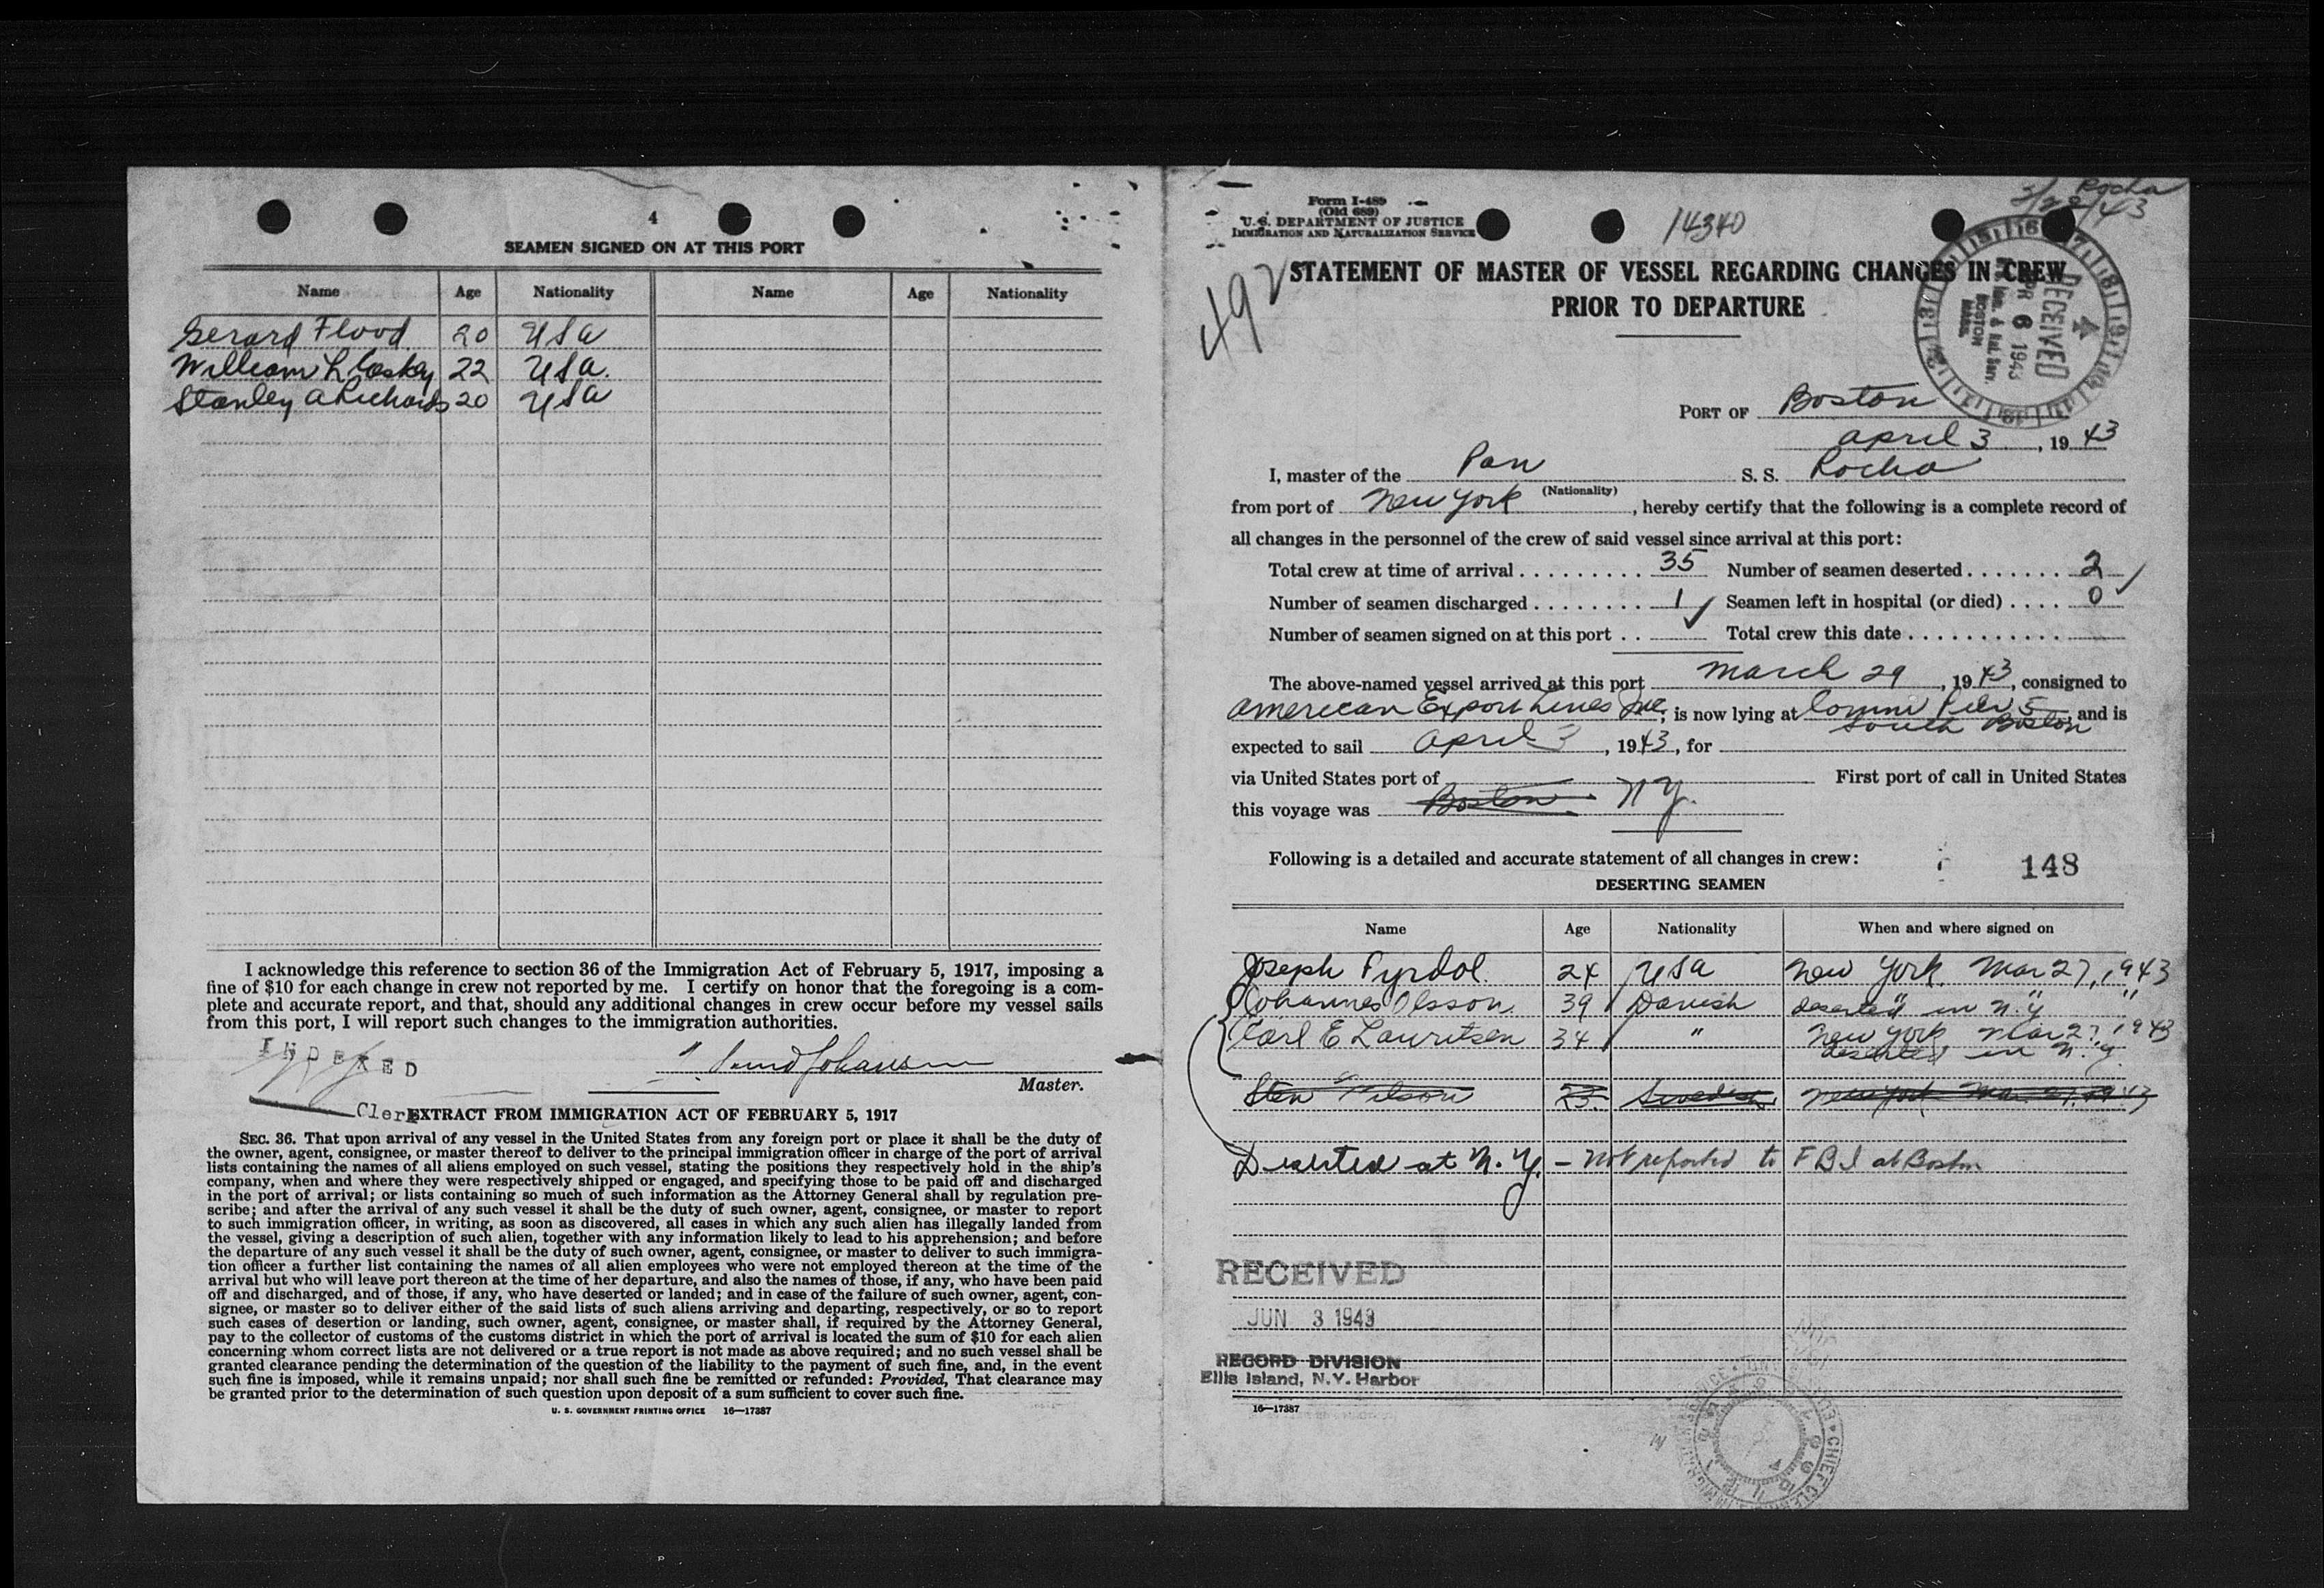 4
SEAMEN SIGNED ON AT THIS PORT
Name Age Nationality Name Age Nationality
Gerard Flood 20 USA
William L Coskey 22 USA.
Stanley A Richards 20 USA
I acknowledge this reference to section 36 of the Immigration Act of February 5, 1917, imposing a
fine of $10 for each change in crew not reported by me. I certify on honor that the foregoing is a com-
plete and accurate report, and that, should any additional changes in crew occur before my vessel sails
from this port, I will report such changes to the immigration authorities.
INDEXED
Johansen
Master.
Clerk
EXTRACT FROM IMMIGRATION ACT OF FEBRUARY 5, 1917
SEC. 36. That upon arrival of any vessel in the United States from any foreign port or place it shall be the duty of
the owner, agent, consignee, or master thereof to deliver to the principal immigration officer in charge of the port of arrival
lists containing the names of all aliens employed on such vessel, stating the positions they respectively hold in the ship's
company, when and where they were respectively shipped or engaged, and specifying those to be paid off and discharged
in the port of arrival; or lists containing so much of such information as the Attorney General shall by regulation pre-
scribe; and after the arrival of any such vessel it shall be the duty of such owner, agent, consignee, or master to report
to such immigration officer, in writing, as soon as discovered, all cases in which any such alien has illegally landed from
the vessel, giving a description of such alien, together with any information likely to lead to his apprehension; and before
the departure of any such vessel it shall be the duty of such owner, agent, consignee, or master to deliver to such immigra-
tion officer a further list containing the names of all alien employees who were not employed thereon at the time of the
arrival but who will leave port thereon at the time of her departure, and also the names of those, if any, who have been paid
off and discharged, and of those, if any, who have deserted or landed; and in case of the failure of such owner, agent, con-
signee, or master so to deliver either of the said lists of such aliens arriving and departing, respectively, or so to report
such cases of desertion or landing, such owner, agent, consignee, or master shall, if required by the Attorney General,
pay to the collector of customs of the customs district in which the port of arrival is located the sum of $10 for each alien
concerning whom correct lists are not delivered or a true report is not made as above required; and no such vessel shall be
granted clearance pending the determination of the question of the liability to the payment of such fine, and, in the event
such fine is imposed, while it remains unpaid; nor shall such fine be remitted or refunded: Provided, That clearance may
be granted prior to the determination of such question upon deposit of a sum sufficient to cover such fine.
U. S. GOVERNMENT PRINTING OFFICE 16—17387
Form I-489
(Old 689)
U. S. DEPARTMENT OF JUSTICE
IMMIGRATION AND NATURALIZATION SERVICE
14340
Rocha
3/29/43
492
STATEMENT OF MASTER OF VESSEL REGARDING CHANGES IN CREW
PRIOR TO DEPARTURE
RECEIVED
APR 6 1943
Imm. & Nat. Serv.
BOSTON
MASS.
PORT OF Boston
April 3, 1943
I, master of the Pan S. S. Rocha
(Nationality)
from port of New York, hereby certify that the following is a complete record of
all changes in the personnel of the crew of said vessel since arrival at this port:
Total crew at time of arrival . . . . . . . . . 35 Number of seamen deserted . . . . . . . 2
Number of seamen discharged . . . . . . . . 1 Seamen left in hospital (or died) . . . . 0
Number of seamen signed on at this port . . Total crew this date . . . . . . . . . . . .
The above-named vessel arrived at this port March 29, 1943, consigned to
American Export Lines Inc, is now lying at Comm Pier 5, and is
South Boston
expected to sail April 3, 1943, for
via United States port of First port of call in United States
this voyage was Boston NY.
Following is a detailed and accurate statement of all changes in crew:
148
DESERTING SEAMEN
Name Age Nationality When and where signed on
Joseph Pyrdol. 24 USA New York. Mar 27, 1943
Johannes Olsson. 39 Danish " " "
deserted in N.Y
Carl E Lauritsen 34 " New York Mar 27 1943
deserted in N.Y.
Sten Nilson 23. Swedish New York Mar. 27. 1943
Deserted at N.Y. - Not reported to FBI at Boston
RECEIVED
JUN 3 1943
RECORD DIVISION
Ellis Island, N.Y. Harbor
16—17387